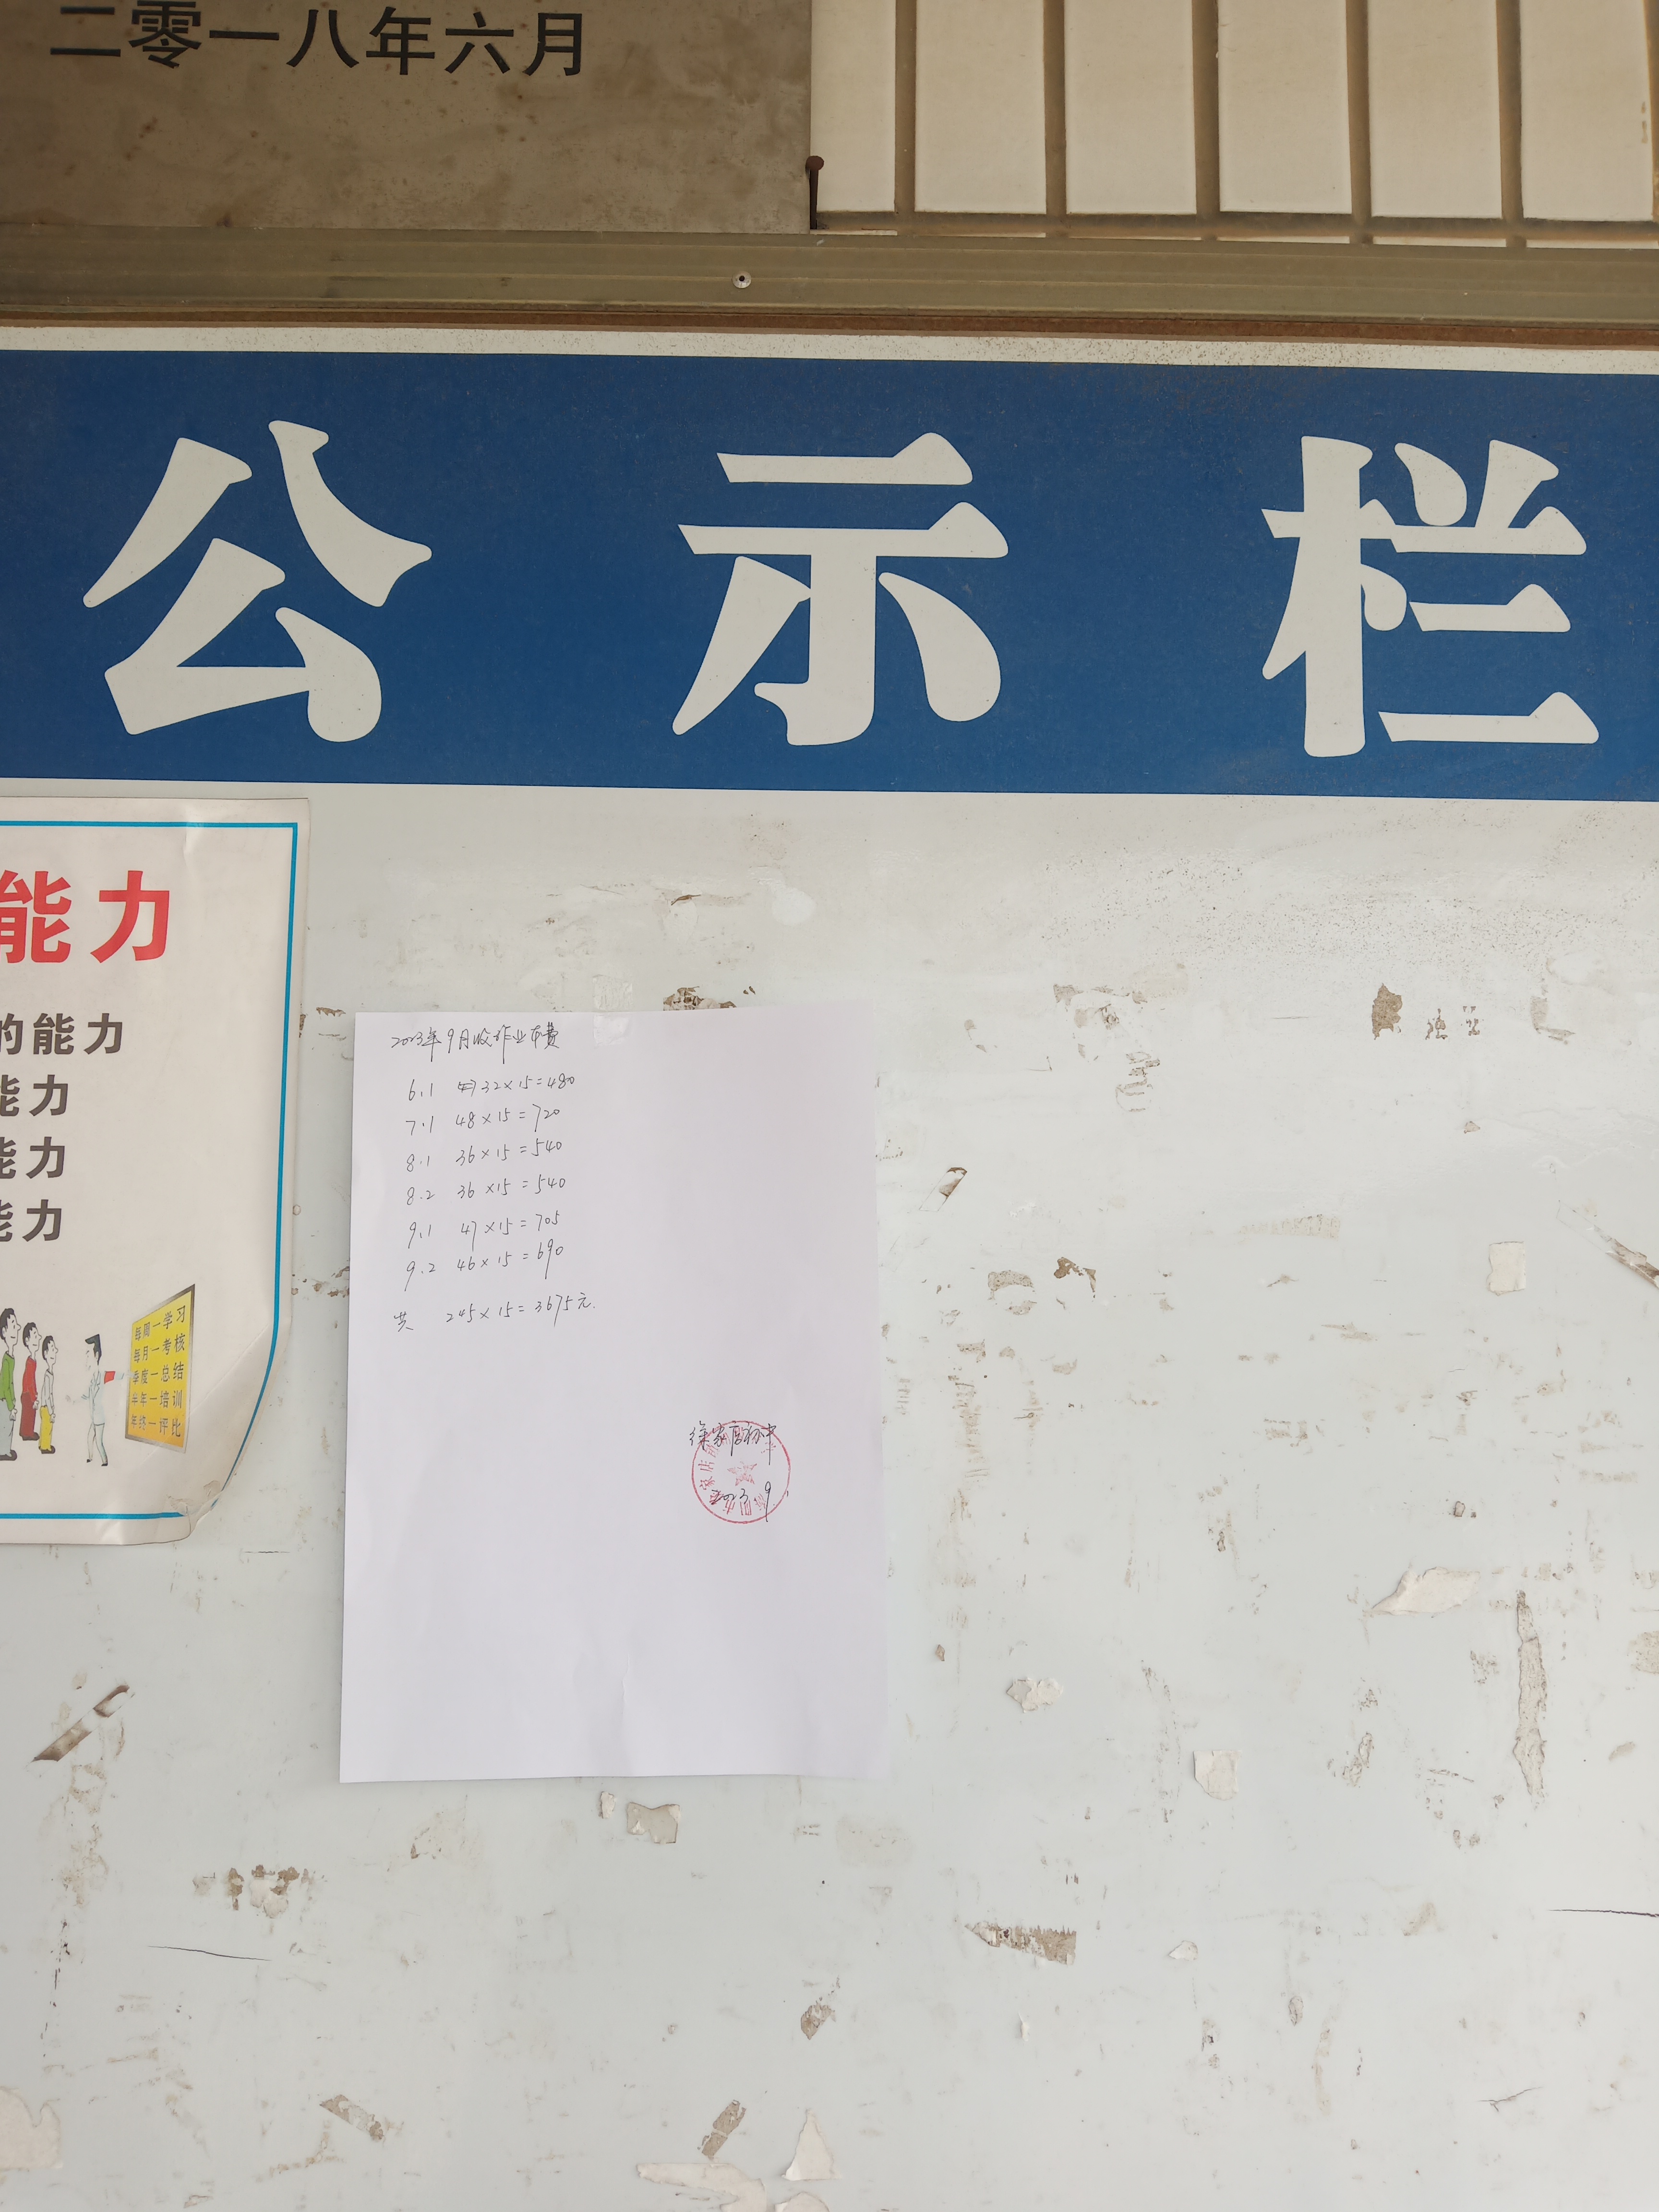 二零一八年六月
公示栏
能力
的能力
能力
能力
能力
每周一学习
每月一考核
季度一总结
半年一培训
年终一评比
2023年9月收作业本费
6.1 32×15=480
7.1 48×15=720
8.1 36×15=540
8.2 36×15=540
9.1 47×15=705
9.2 46×15=690
共 245×15=3675元.
徐家店初中
2023.9.